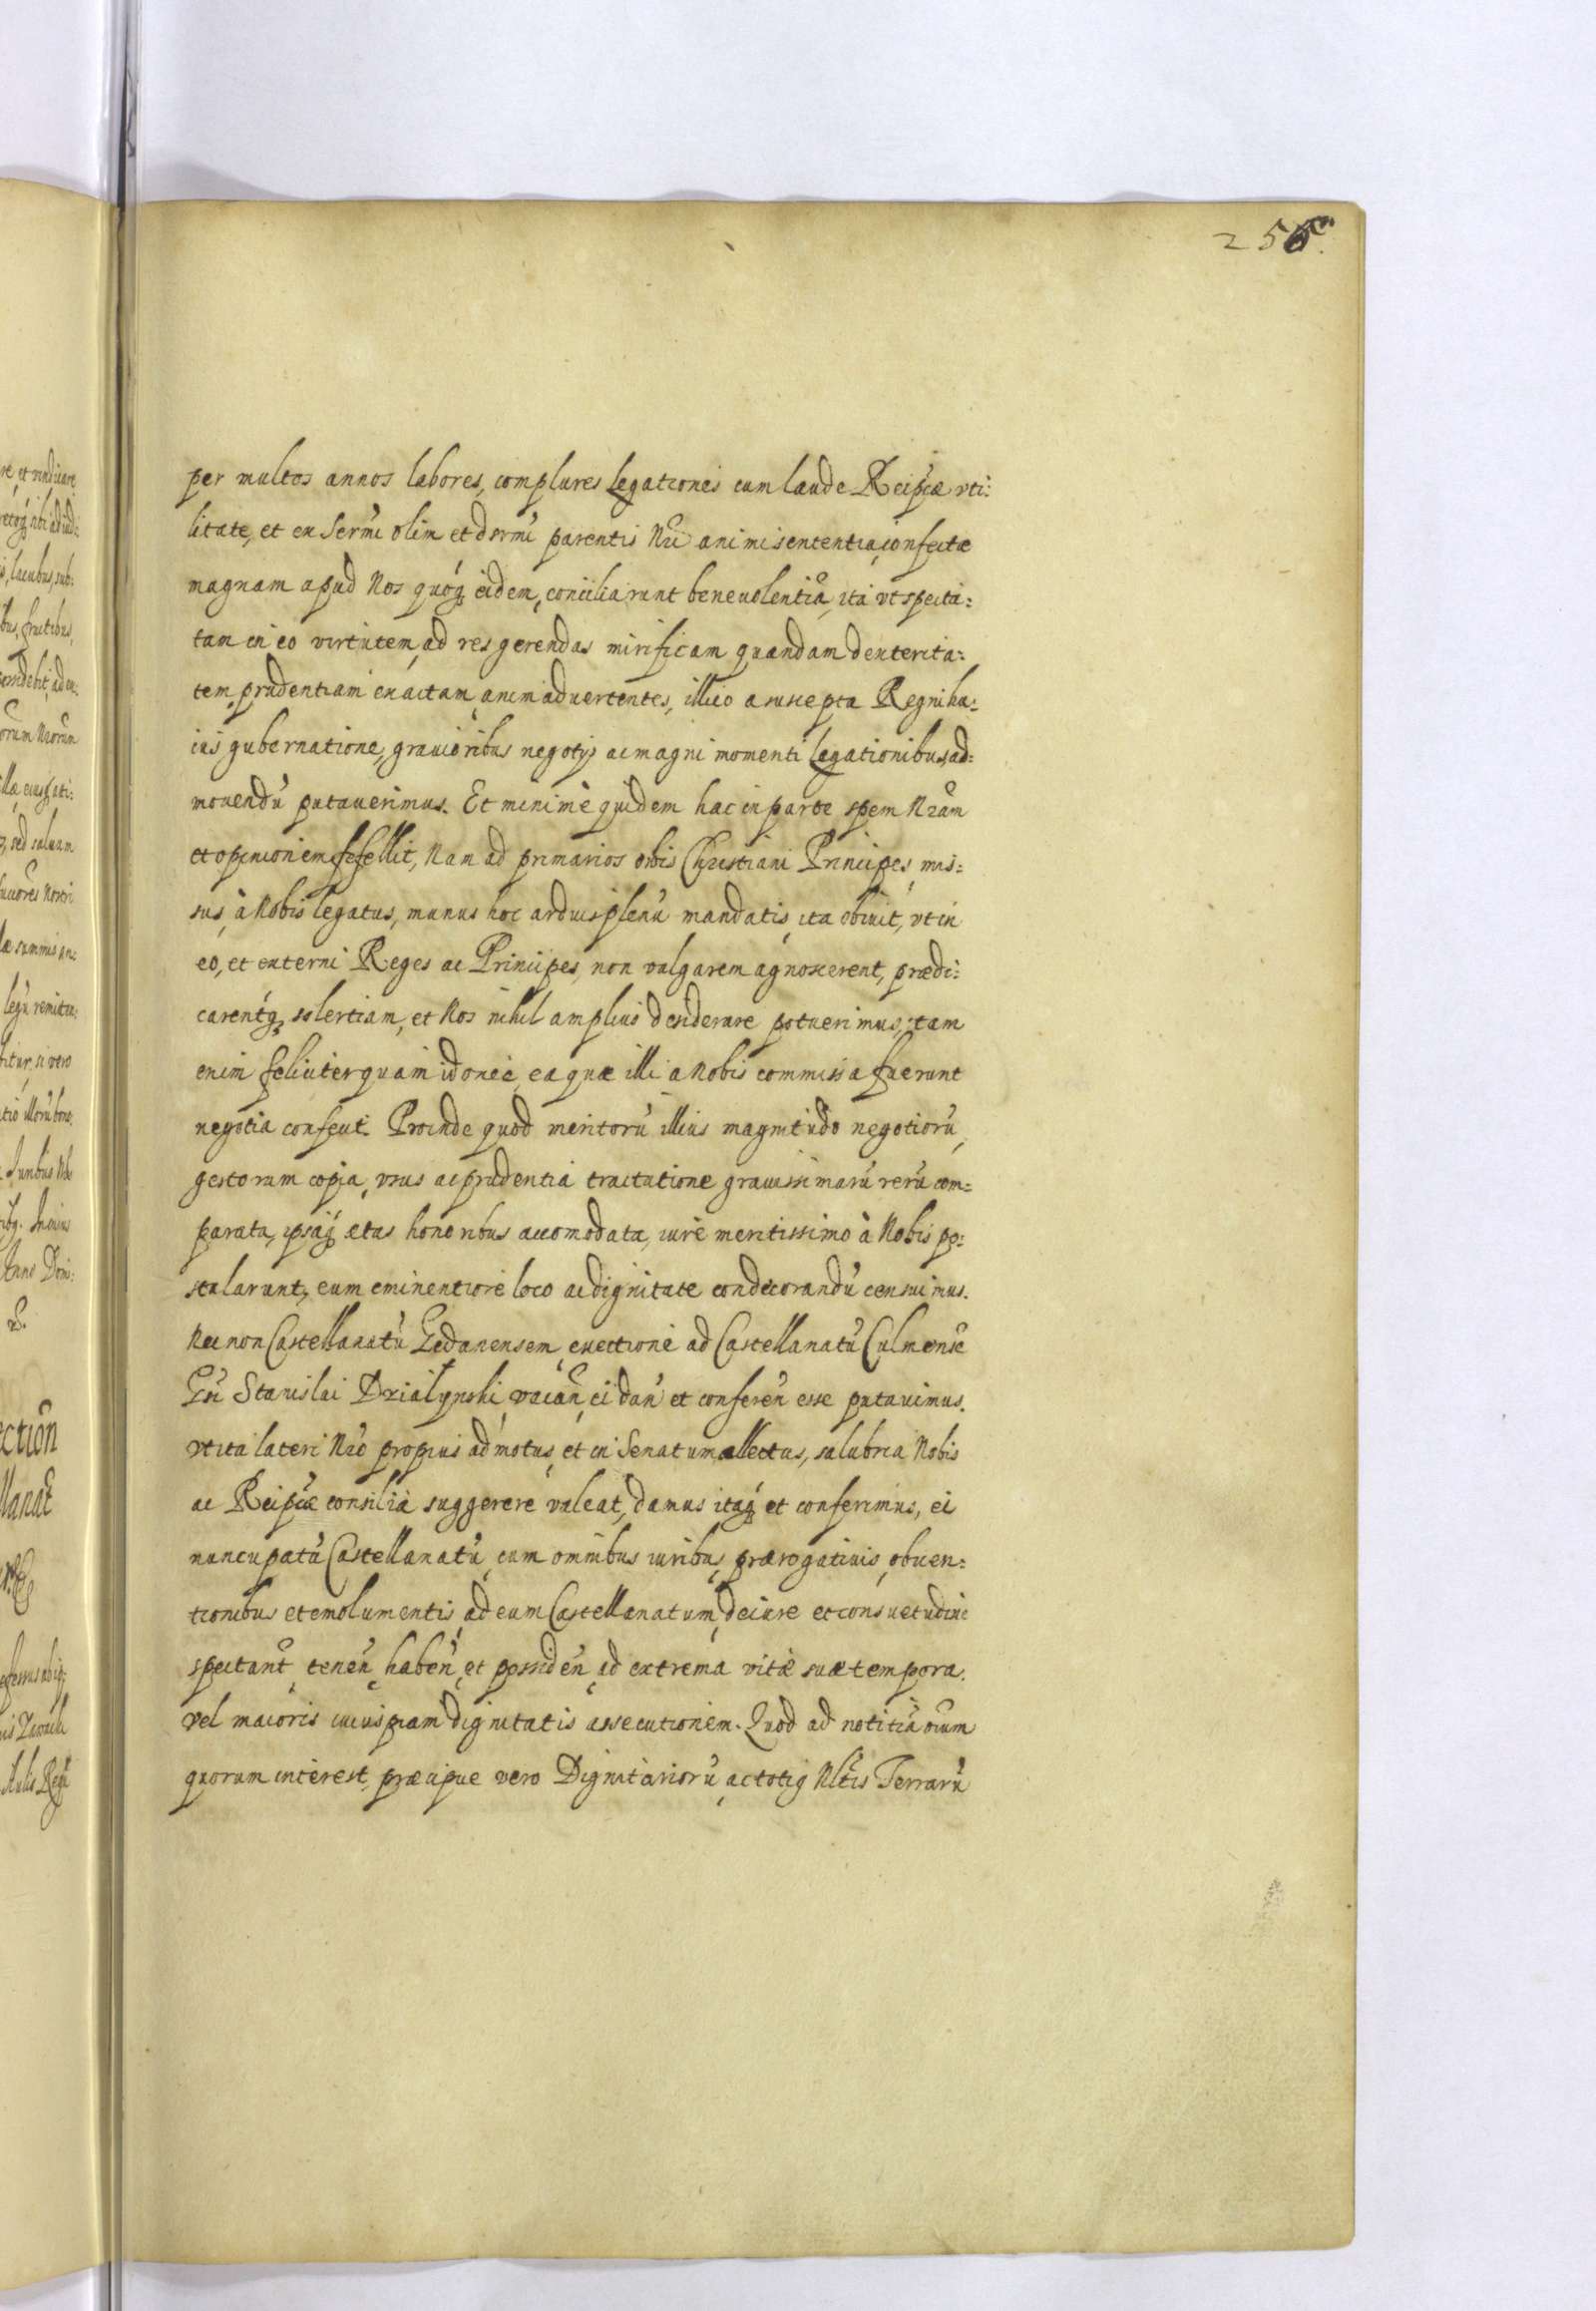 256
per multos annos labores, complures Legationes cum laude Reipcæ vti:
litate, et ex Sermi olim et dsrmi parentis Nri animi sententia, confectæ
magnam apud Nos quoq eidem, conciliarunt beneuolentiã, ita vt specta:
tam in eo virtutem, ad res gerendas mirificam quandam dexterita:
tem, prudentiam exactam, animaduertentes, illico a suscepta Regni hu:
ius gubernatione, grauioribus negotijs ac magni momenti Legationibus, ad:
mouendũ putauerimus. Et minimè quidem hac in parte spem Nram
et opinionem fefellit, Nam ad primarios orbis Christiani Principes, mis:
sus, à Nobis legatus, munus hoc arduis plenũ mandatis, ita obiuit, vt in
eo, et externi Reges ac Principes, non vulgarem agnoscerent, prædi:
carentq, solertiam, et Nos nihil amplius desiderare potuerimus, tam
enim feliciter quam idoneè, ea quæ illi a Nobis commissa fuerunt
negotia confecit. Proinde quod meritorũ illius magnitudo negotiorũ,
gestorum copia, vsus ac prudentia tractatione grauissimarũ rerũ com:
parata, ipsaq ætas honoribus accomodata, iure meritissimo à Nobis po:
stularunt, eum eminentiore loco ac dignitate condecorandũ censuimus.
Nec non Castellanatũ Gedanensem, euectione ad Castellanatũ Culmense
Gsi Stanislai Dzialynski, vacan, ei dan et conferen esse putauimus.
vt ita lateri Nro propius admotus, et in Senatum allectus, salubria Nobis
ac Reipcæ consilia suggerere valeat, damus itaq et conferimus, ei
nuncupatũ Castellanatũ, cum omnibus iuribus, prærogatiuis, obuen:
tionibus et emolumentis, ad eum Castellanatum, de iure et consuetudine
spectant, tenen, haben, et possiden, ad extrema vitæ suæ tempora.
vel maioris cuiuspiam dignitatis assecutionem. Quod ad notitiã oium
quorum interest, præcipue vero Dignitariorũ, ac totiq Nltis Terrarũ